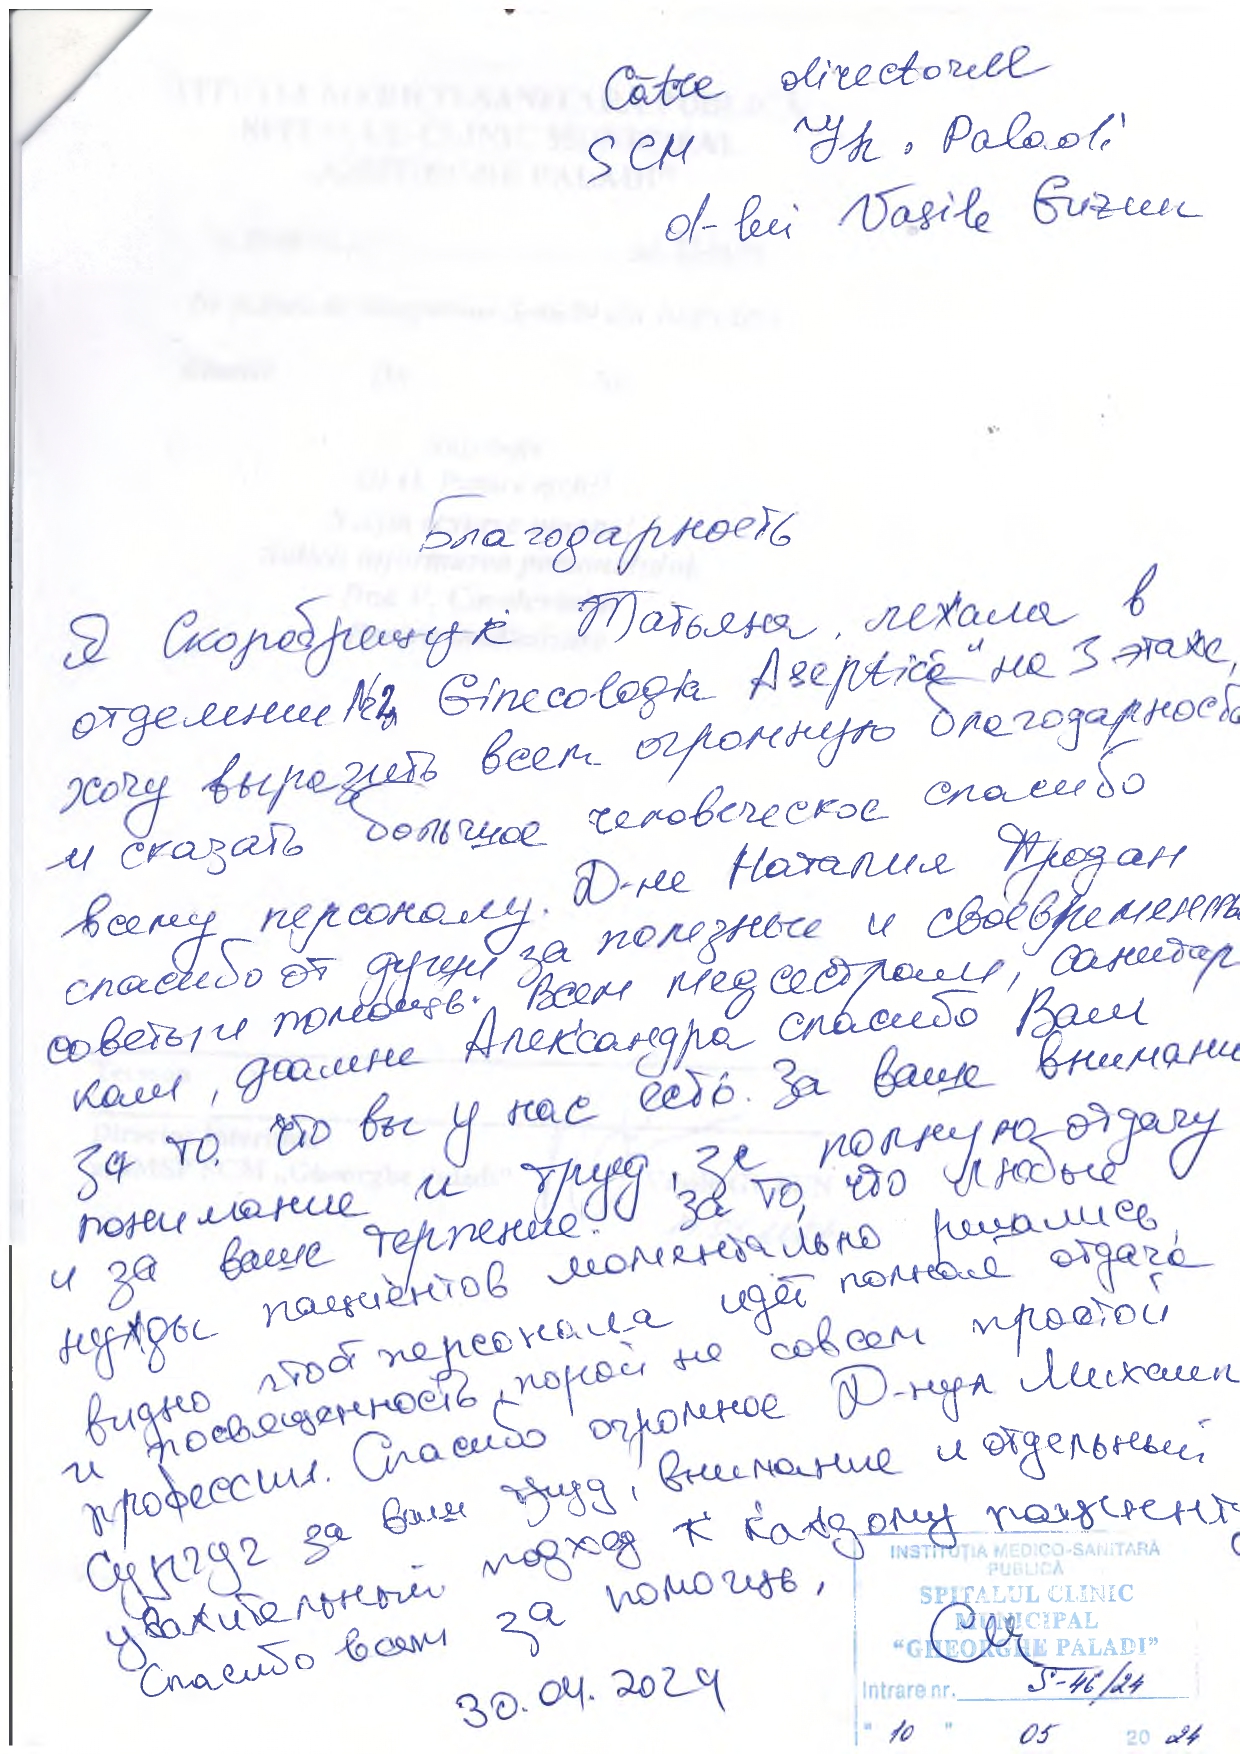 Către directorul
SCM Gh. Paladi
d-lui Vasile Guzun
Благодарность
Я Скоробрещук Татьяна, лежала в
отделении №2 Ginecologia Aseptică" на 3 этаже,
хочу выразить всем огромную благодарность
и сказать большое человеческое спасибо
всему персоналу. Д-не Наталия Продан
спасибо от души за полезные и своевременные
советы и помощь. Всем медсестрам, санитар
кам, доамне Александра спасибо Вам
за то что вы у нас есть. За ваше внимани
понимание и труд, за полную отдачу
и за ваше терпение. За то, что любые
нужды пациентов моментально решались,
видно что от персонала идёт полная отдача
и посвященность, порой не совсем простой
профессии. Спасибо огромное Д-нул Михаил
за ваш труд, внимание и отдельный
уважительный подход к каждому пациенту
Спасибо всем за помощь.
30.04.2024
INSTITUȚIA MEDICO-SANITARĂ
PUBLICĂ
SPITALUL CLINIC
MUNICIPAL
"GHEORGHE PALADI"
Intrare nr. S-46/24
" 10 " 05 2024